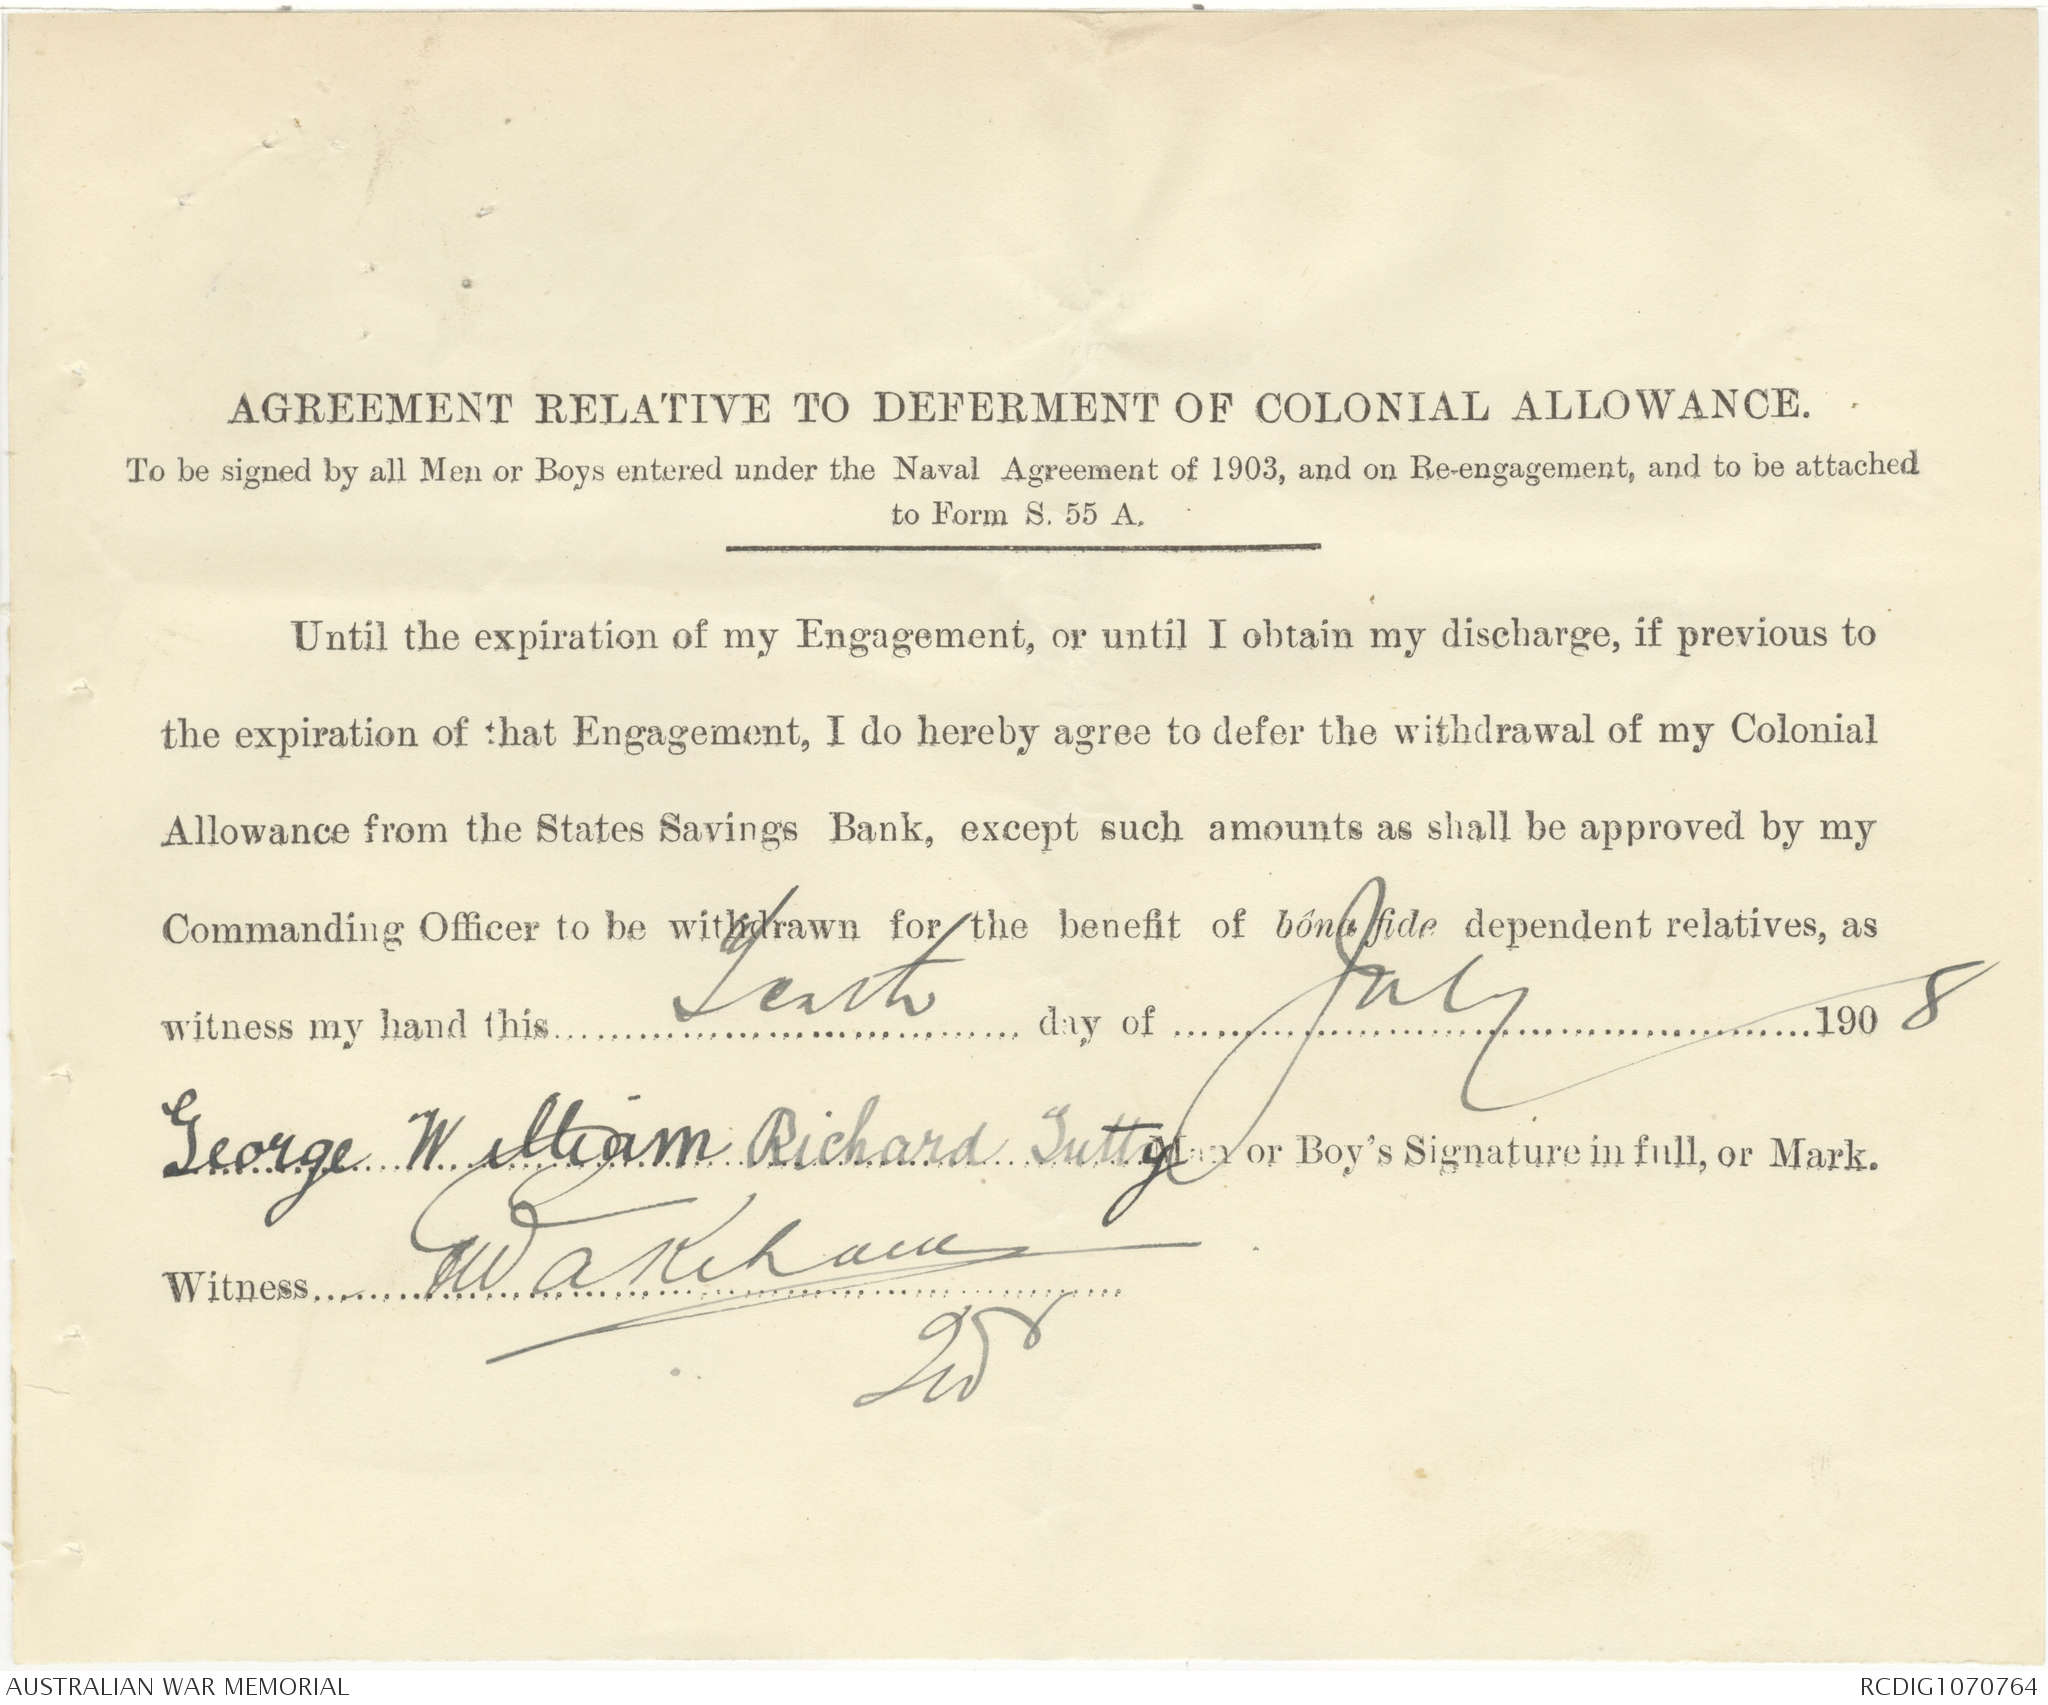 AGREEMENT RELATIVE TO DEFERMENT OF COLONIAL ALLOWANCE.
To be signed by all Men or Boys entered under the Naval Agreement of 1903, and on Re-engagement, and to be attached
to Form S. 55 A.
Until the expiration of my Engagement, or until I obtain my discharge, if previous to
the expiration of that Engagement, I do hereby agree to defer the withdrawal of my Colonial
Allowance from the States Savings Bank, except such amounts as shall be approved by my
Commanding Officer to be withdrawn for the benefit of bônâ fide dependent relatives, as
witness my hand this Tenth day of July 1908
George William Richard Tutty Man or Boy's Signature in full, or Mark.
Witness Wakeham
AUSTRALIAN WAR MEMORIAL RCDIG1070764